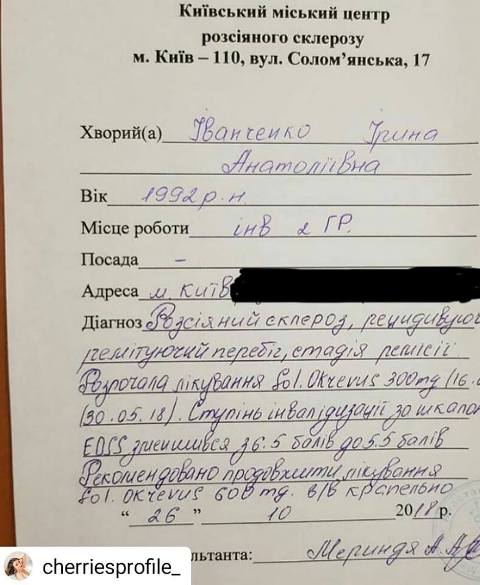 Київський міський центр
розсіяного склерозу
м. Київ – 110, вул. Солом’янська, 17
Хворий(а) Іванченко Ірина
Анатоліївна
Вік 1992 р.н.
Місце роботи інв 2 гр.
Посада –
Адреса м. Київ
Діагноз Розсіяний склероз, рецидивуюч
ремітуючий перебіг, стадія ремісії
Розпочала лікування Sol. Okrevus 300mg (16.
(30.05.18). Ступінь інвалідизації за шкалою
EDSS зменшився з 6.5 балів до 5.5 балів
Рекомендовано продовжити лікування
Sol. Okrevus 600 mg. в/в крапельно
“ 26 ” 10 2018 р.
льтанта: Мериндя А.
cherriesprofile_